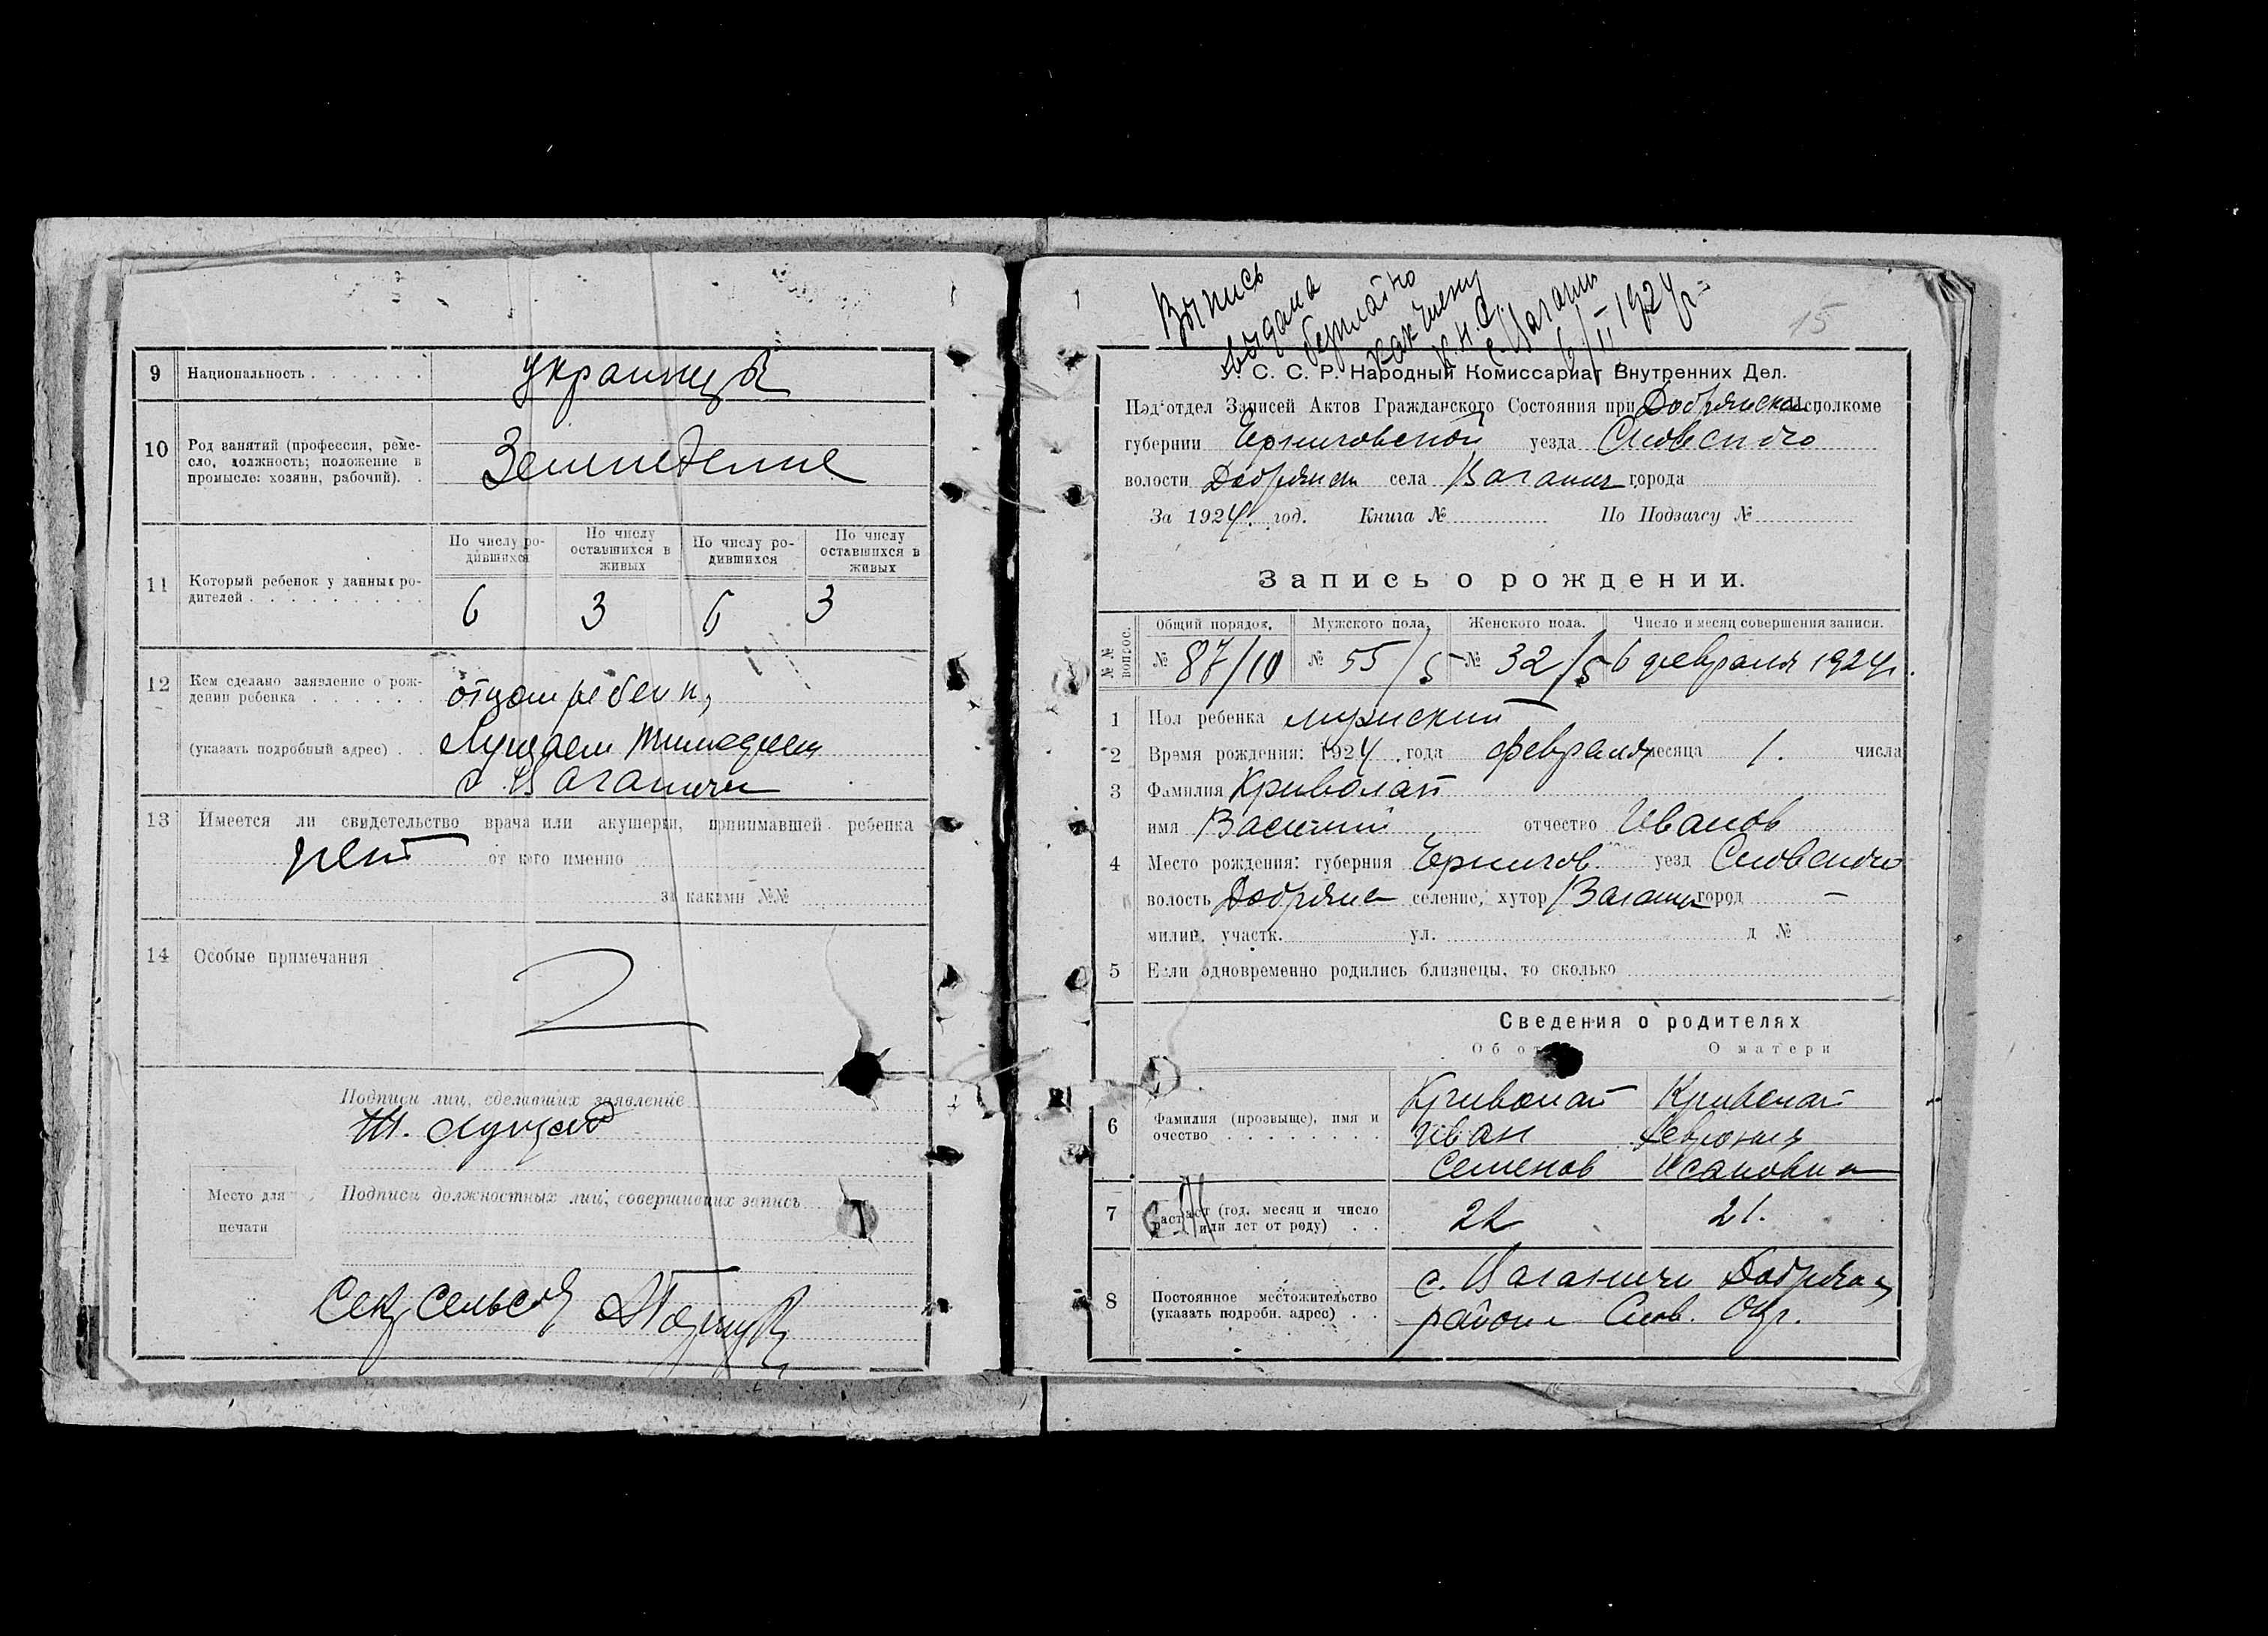 9 Национальность . . . . . . украинцы
10 Род занятий (профессия, реме-
сло, должность; положение в
промысле: хозяин, рабочий). .
Земледелие
По числу ро-
дившихся
По числу
оставшихся в
живых
По числу ро-
дившихся
По числу
оставшихся в
живых
11 Который ребенок у данных ро-
дителей . . . . . . . . .
6 3 6 3
12 Кем сделано заявление о рож-
дении ребенка . . . . . .
отцом ребенк
(указать подробный адрес) . .
Лущаем Тимофеем
с. Ваганичи
13 Имеется ли свидетельство врача или акушерки, принимавшей ребенка
нет от кого именно
за какими №№
14 Особые примечания
Подписи лиц, сделавших заявление
Т. Лущай
Место для
печати
Подписи должностных лиц, совершивших запись
Сек сельс
Выпись
выдана
бесплатно
как члену
К.Н.С.
с. Ваганич
6/II 1924 г.
15
У. С. С. Р. Народный Комиссариат Внутренних Дел.
Под'отдел Записей Актов Гражданского Состояния при Добрянском Исполкоме
губернии Черниговской уезда Сновского
волости Добрянск села Ваганич города
За 1924 год. Книга № По Подзагсу №
Запись о рождении.
№№ вопрос.
Общий порядок. Мужского пола. Женского пола. Число и месяц совершения записи.
№ 87/10 № 55/5 № 32/5 6 февраля 1924 г.
1 Пол ребенка мужский
2 Время рождения: 1924 года февраля месяца 1. числа
3 Фамилия Криволап
имя Василий отчество Иванов
4 Место рождения: губерния Чернигов уезд Сновского
волость Добрянс селение, хутор Ваганич город —
милиц. участк. ул. д №
5 Если одновременно родились близнецы, то сколько
Сведения о родителях
Об от О матери
6 Фамилия (прозвыще), имя и
очество . . . . . . . .
Криволап
Иван
Семенов
Криволап
Феврония
Исаковна
7 раст (год, месяц и число
или лет от роду) . .
22 21.
8 Постоянное местожительство
(указать подробн. адрес) . .
с. Ваганичи Добрянск
района Снов. Окр.